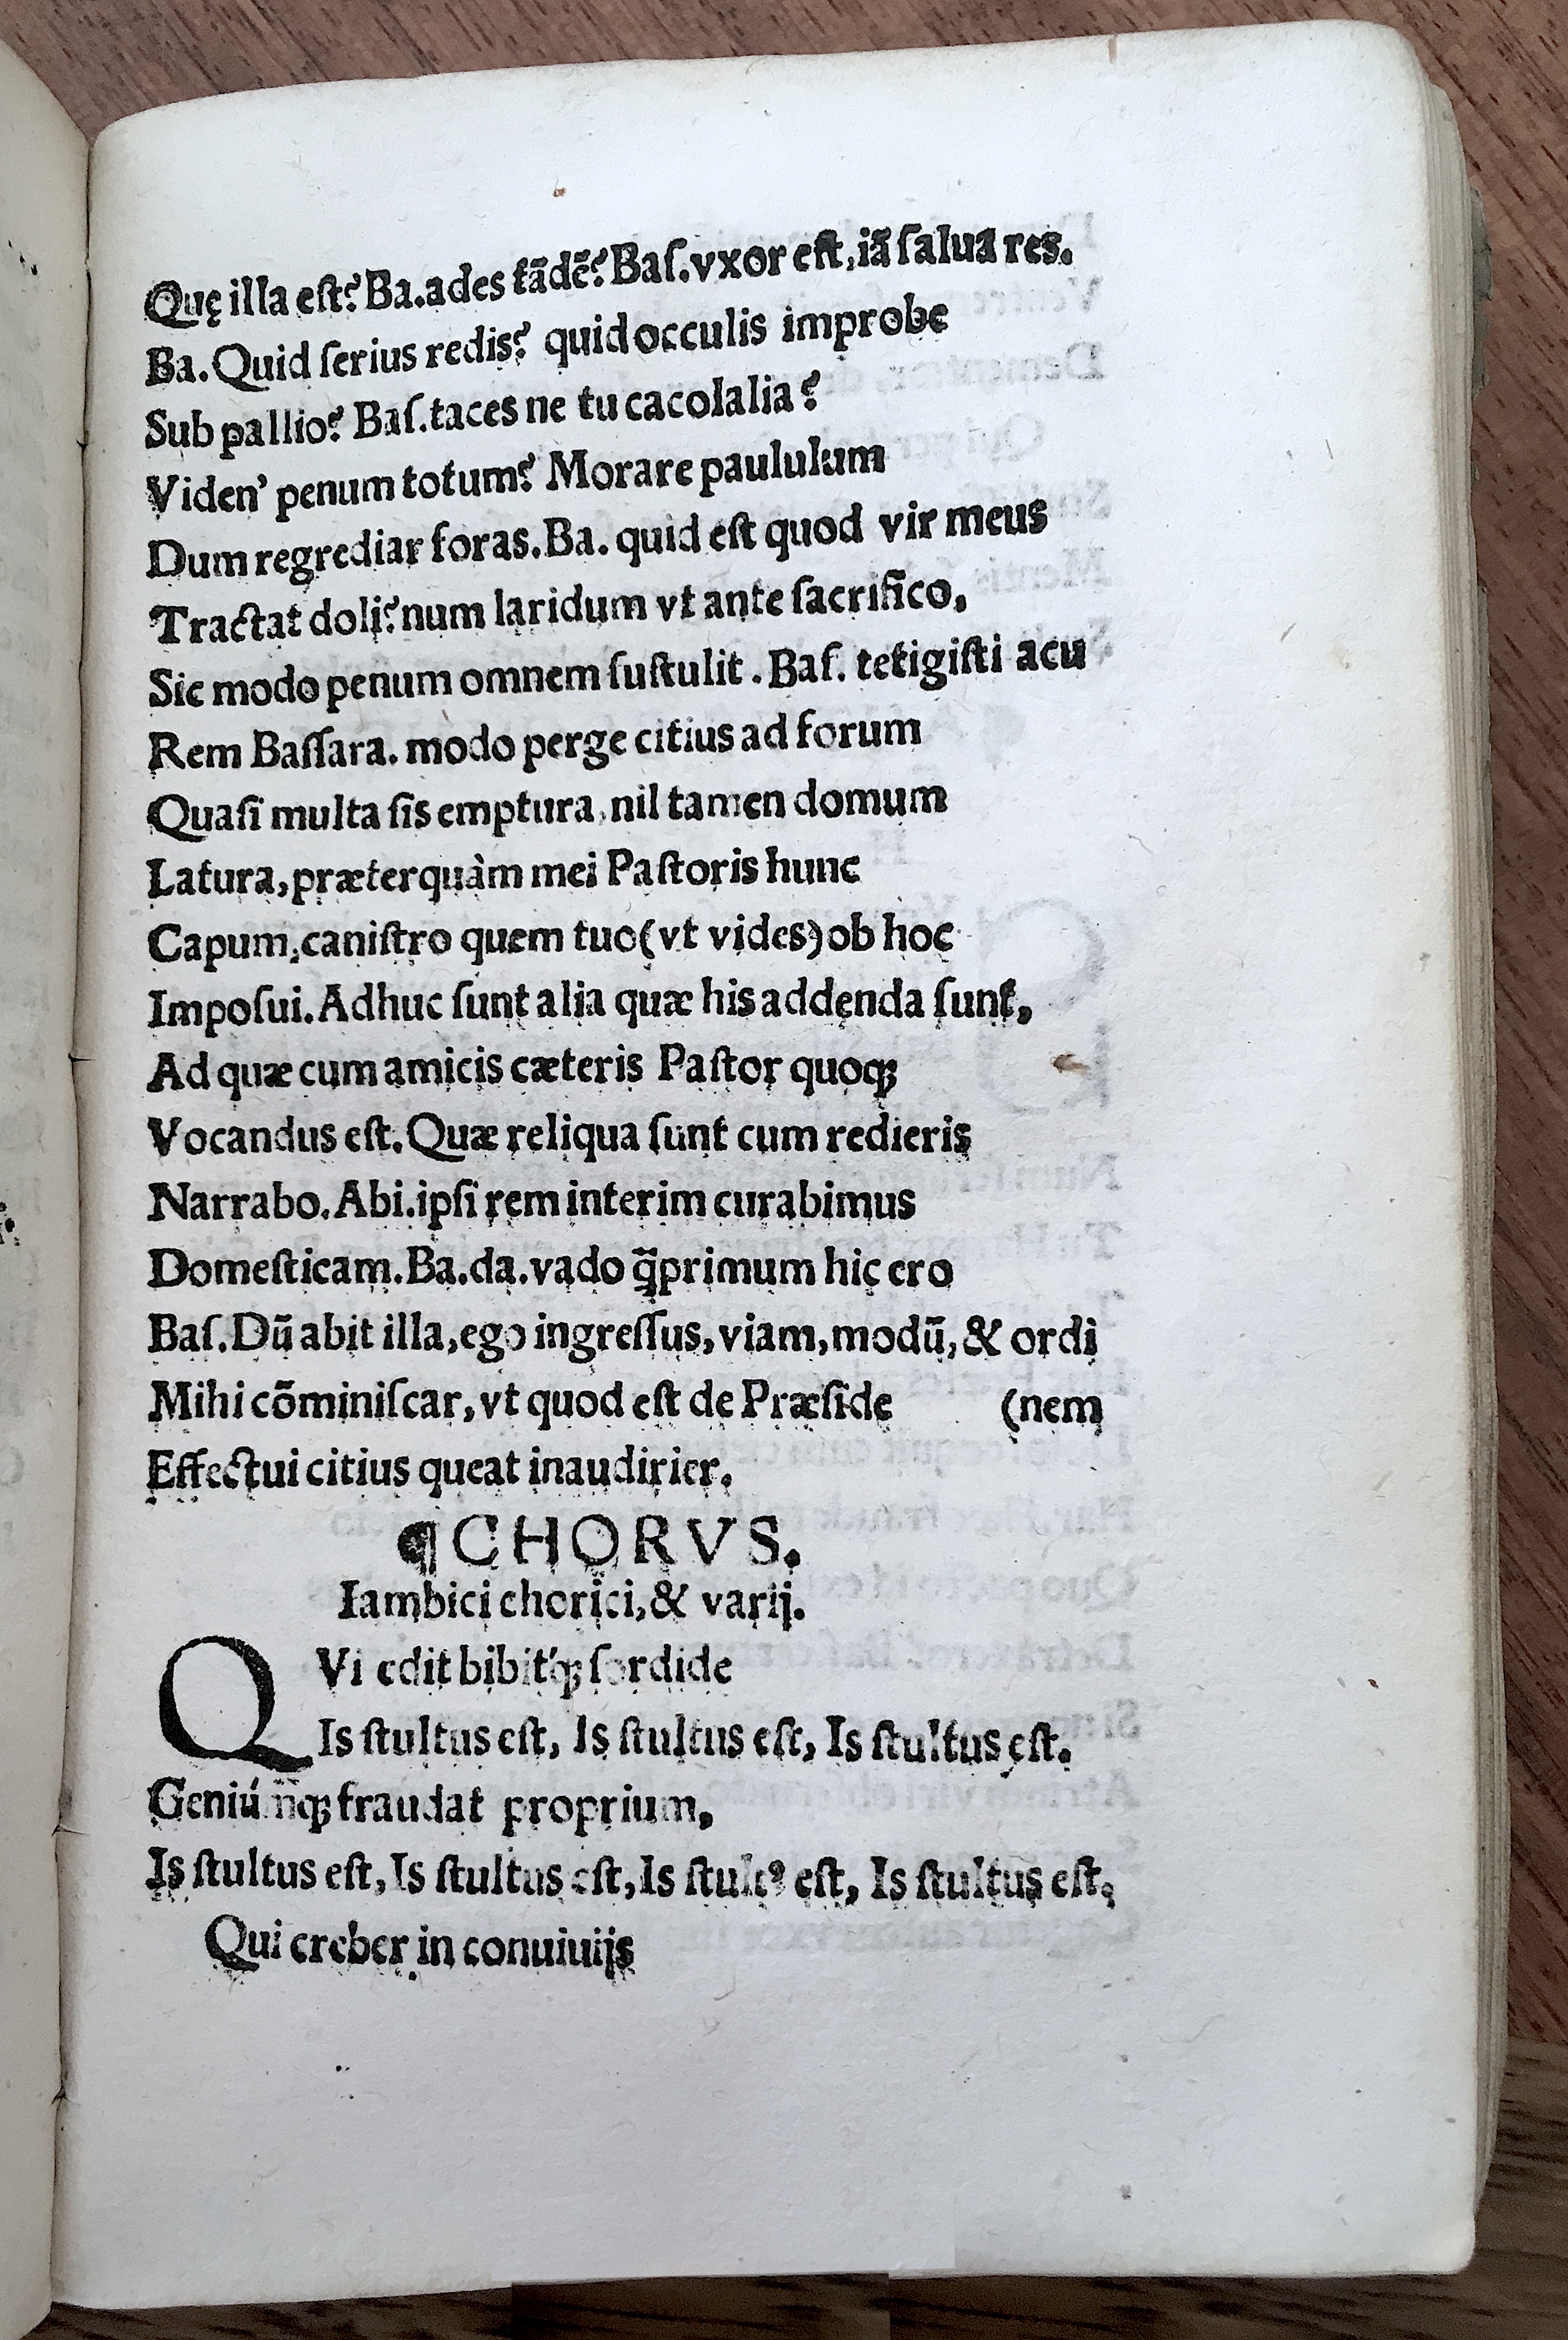 Quę illa eſt? Ba.ades tãdẽ? Baſ.vxor eſt,iã ſaluã res.
Ba. Quid ſerius redis? quid occulis improbe
Sub pallio? Baſ.taces ne tu cacolalia?
Viden' penum totum? Morare paululum
Dum regrediar foras.Ba. quid eſt quod vir meus
Tractat doli? num laridum vt ante ſacrifico,
Sic modo penum omnem ſuſtulit. Baſ. tetigiſti acu
Rem Baſſara. modo perge citius ad forum
Quaſi multa ſis emptura,nil tamen domum
Latura, præterquàm mei Paſtoris hunc
Capum,caniſtro quem tuo(vt vides)ob hoc
Impoſui. Adhuc ſunt alia quæ his addenda ſunt,
Ad quæ cum amicis cæteris Paſtor quoqꝫ
Vocandus eſt. Quæ reliqua ſunt cum redieris
Narrabo. Abi.ipſi rem interim curabimus
Domeſticam.Ba.da.vado q̃primum hic ero
Baſ.Dũ abit illa,ego ingreſſus,viam,modũ,& ordi
Mihi cõminiſcar, vt quod eſt de Præſide (nem
Effectui citius queat inaudirier.
¶CHORVS.
Iambici chorici,& varij.
QVi edit bibit'qꝫ ſordide
Is ſtultus eſt, Is ſtultus eſt, Is ſtultus eſt.
Geniúmqꝫ fraudat proprium,
Is ſtultus eſt, Is ſtultus eſt, Is ſtultꝰ eſt, Is ſtultus eſt.
Qui creber in conuiuijs